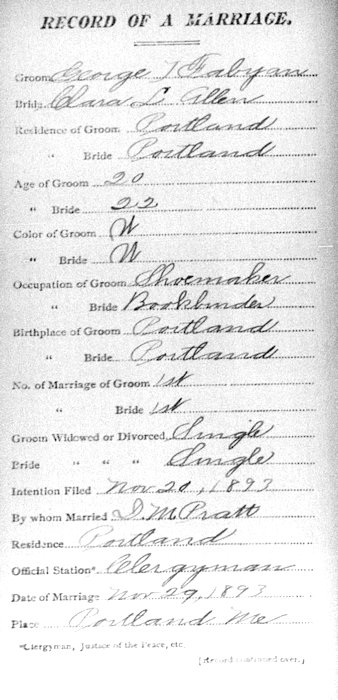 RECORD OF A MARRIAGE.
Groom George T Fabyan
Bride Clara L Allen
Residence of Groom Portland
" Bride Portland
Age of Groom 20
" Bride 22
Color of Groom W
" Bride W
Occupation of Groom Shoemaker
" Bride Bookbinder
Birthplace of Groom Portland
" Bride Portland
No. of Marriage of Groom 1st
" Bride 1st
Groom Widowed or Divorced Single
Bride " " " Single
Intention Filed Nov 20, 1893
By whom Married D M Pratt
Residence Portland
Official Station*. Clergyman
Date of Marriage Nov 29, 1893
Place Portland Me
*Clergyman, Justice of the Peace, etc.
[Record continued over.]